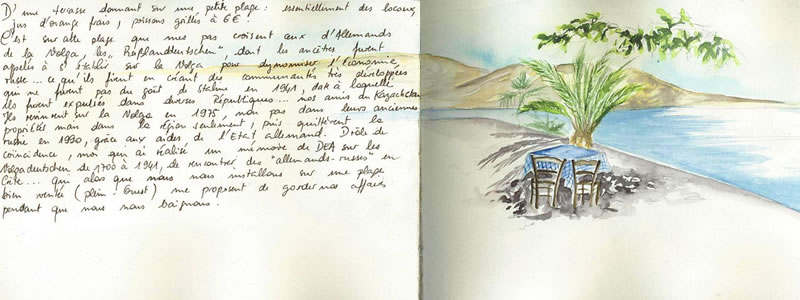 D'une terrasse donnant sur une petite plage : essentiellement des locaux,
jus d'orange frais, poissons grillés à 6€ !
C'est sur cette plage que mes pas croisent ceux d'Allemands
de la Volga, les "Rußlanddeutschen", dont les ancêtres furent
appelés à s'établir sur la Volga pour dynamiser l'Economie,
russe... ce qu'ils firent en créant des communautés très développées
qui ne furent pas du goût de Staline en 1941, date à laquelle
ils furent expulsés dans diverses Républiques... nos amis du Kazachstan.
Ils revinrent sur la Volga en 1975, non pas dans leurs anciennes
propriétés mais dans la région seulement, puis quittèrent la
russie en 1990, grâce aux aides de l'Etat allemand. Drôle de
coïncidence, moi qui ai réalisé un mémoire de DEA sur les
Wolgadeutschen de 1700 à 1941, de rencontrer des "allemands-russes" en
Crète... qui alors que nous nous installons sur une plage
bien ventée (plein Ouest) me proposent de garder nos affaires
pendant que nous nous baignons.